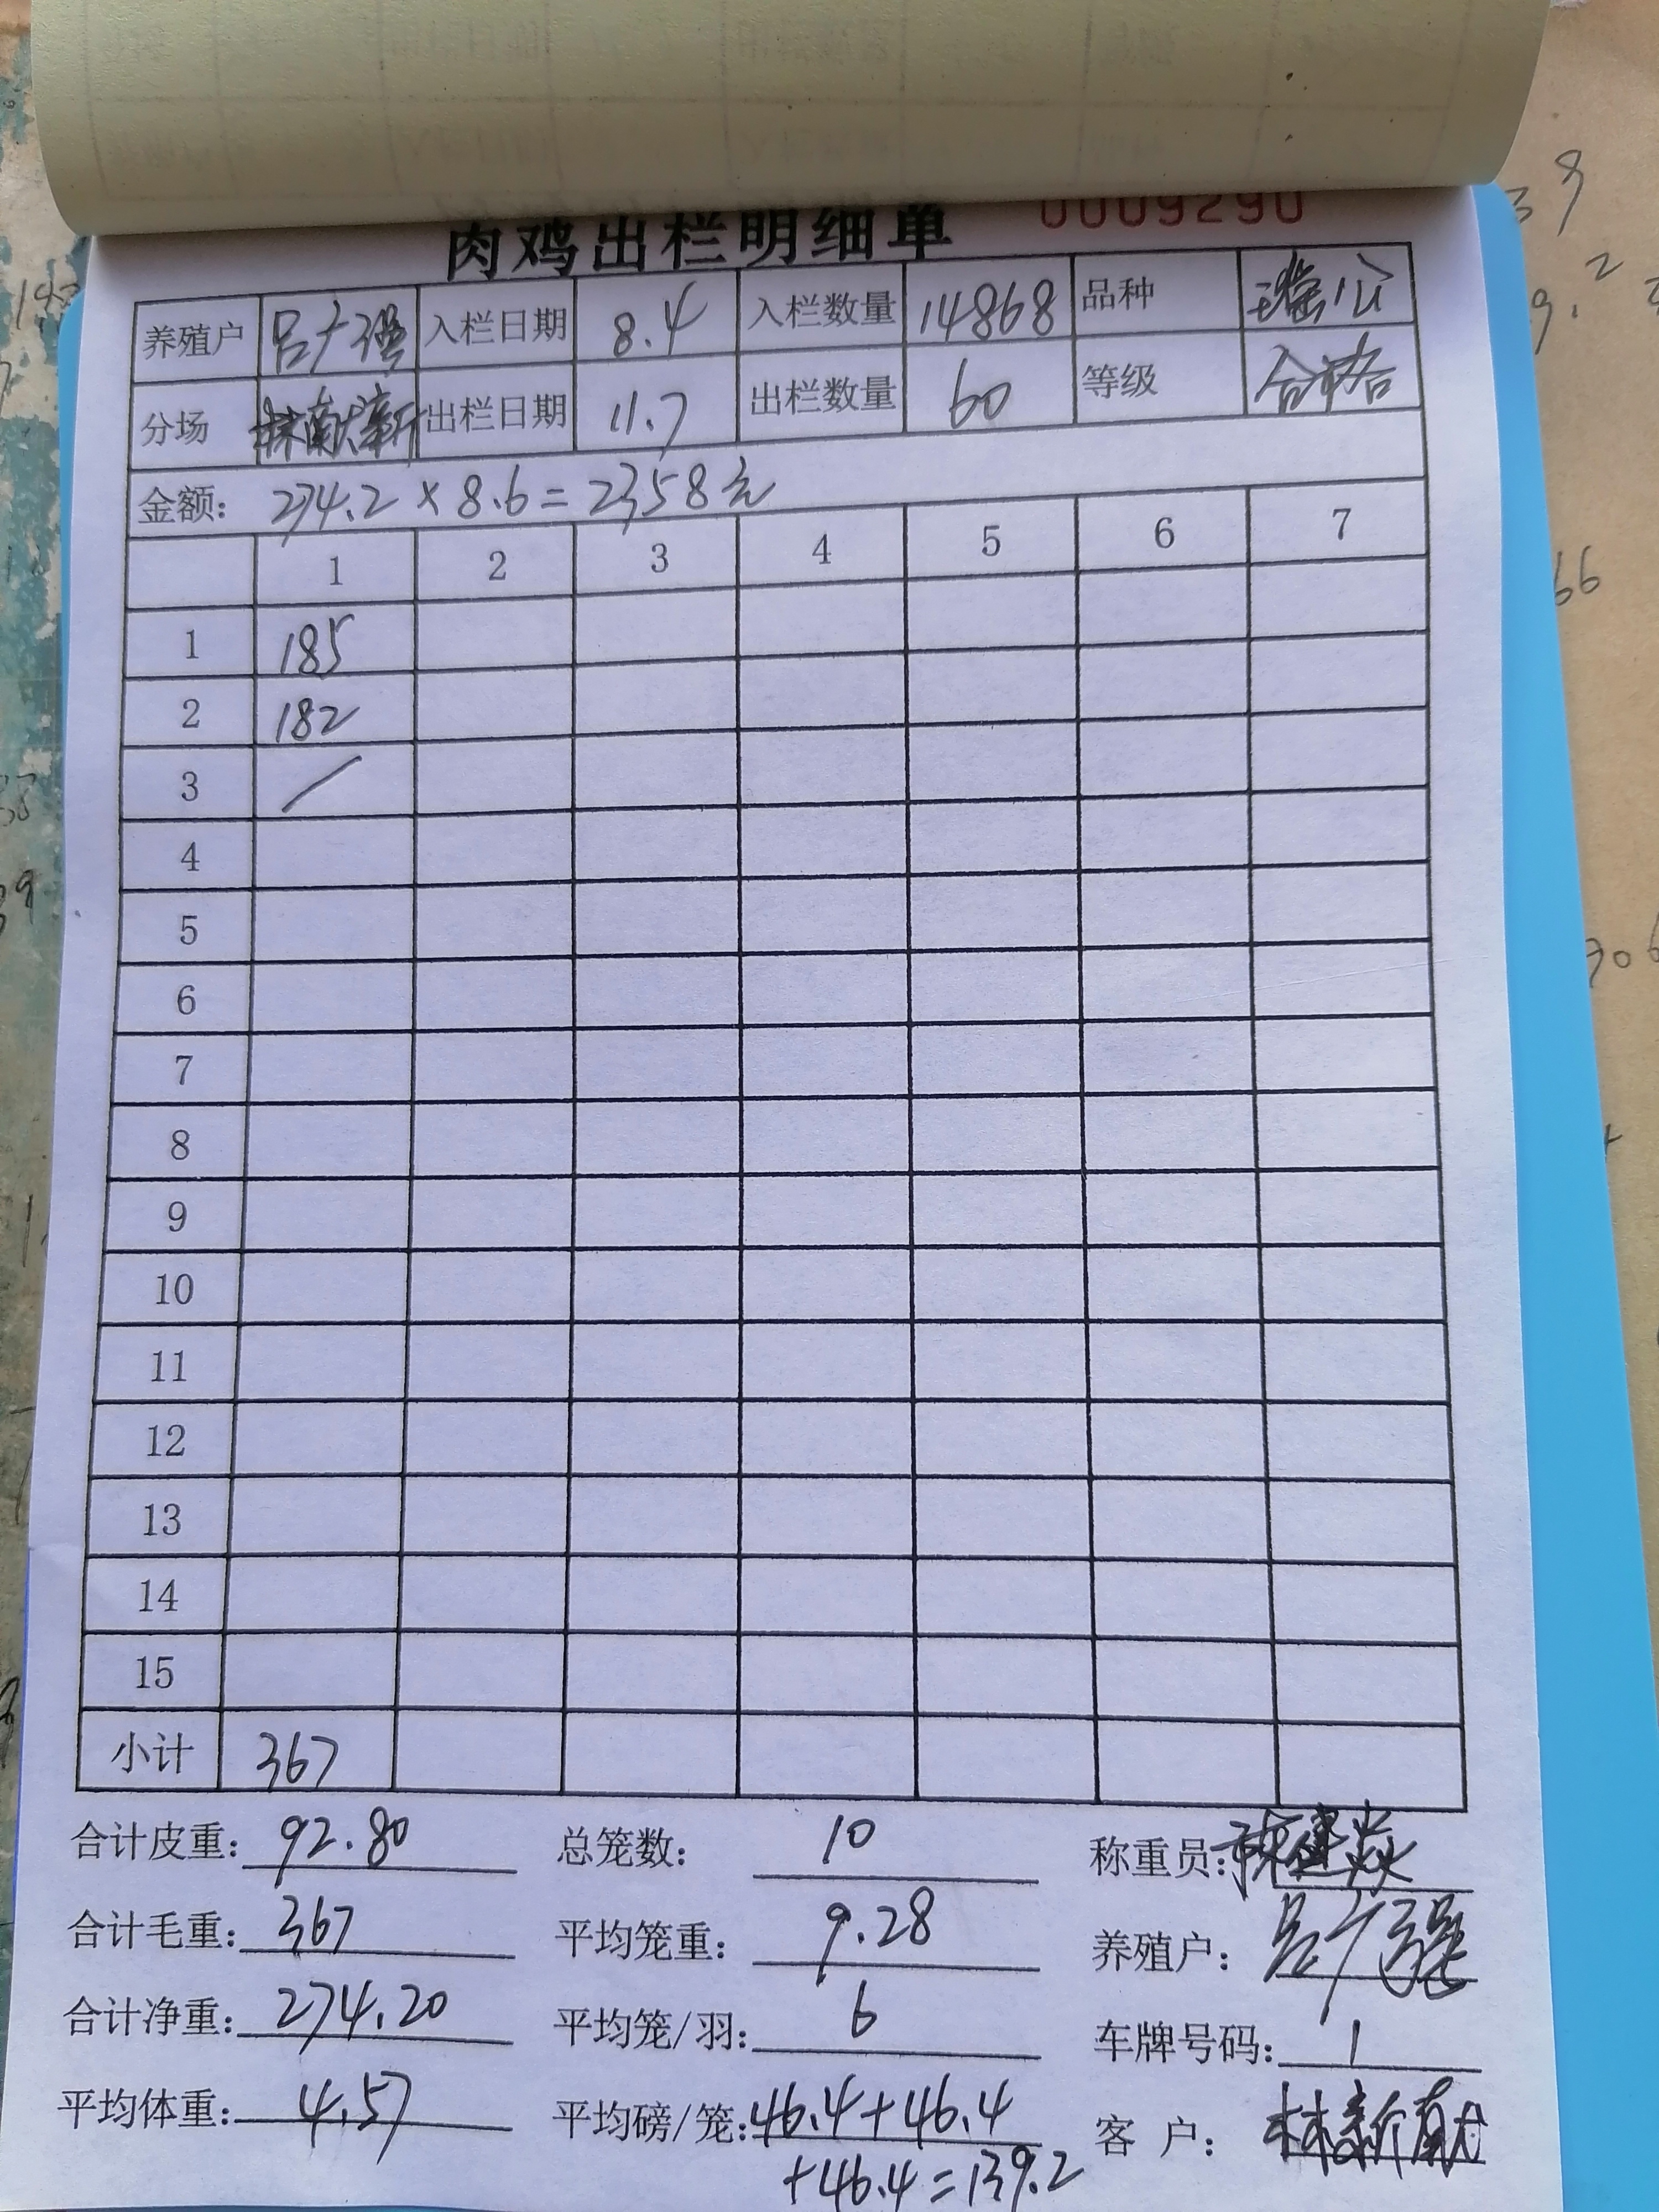 肉鸡出栏明细单 0009290
养殖户 吕广强 入栏日期 8.4 入栏数量 14868 品种 瑞公
分场 出栏日期 11.7 出栏数量 60 等级 合格
金额: 274.2 × 8.6 = 2358元
1 2 3 4 5 6 7
1 185
2 182
3 /
4
5
6
7
8
9
10
11
12
13
14
15
小计 367
合计皮重: 92.80 总笼数: 10 称重员:
合计毛重: 367 平均笼重: 9.28 养殖户: 吕广强
合计净重: 274.20 平均笼/羽: 6 车牌号码: 1
平均体重: 4.57 平均磅/笼: 46.4+46.4 客 户: 林新献
+46.4=139.2